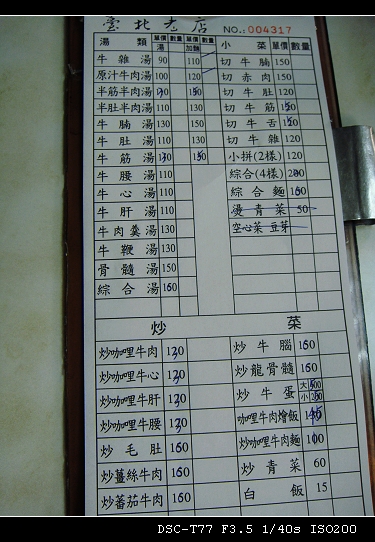 臺北老店 NO.: 004317
湯類 單價 數量 單價 數量 小菜 單價 數量
湯 加麵
牛雜湯 90 110 切牛腩 150
原汁牛肉湯 100 120 切赤肉 150
半筋半肉湯 切牛肚 120
半肚半肉湯 110 130 切牛筋
牛腩湯 130 150 切牛舌
牛肚湯 110 130 切牛雜 120
牛筋湯 小拼(2樣) 120
牛腰湯 110 綜合(4樣)
牛心湯 110 綜合麵
牛肝湯 110 燙青菜 50
牛肉羹湯 130 空心菜 豆芽
牛鞭湯 130
骨髓湯 150
綜合湯
炒菜
炒咖哩牛肉 炒牛腦
炒咖哩牛心 炒龍骨髓
炒咖哩牛肝 炒牛蛋 大 小
炒咖哩牛腰 咖哩牛肉燴飯
炒毛肚 咖哩炒牛肉麵
炒薑絲牛肉 炒青菜 60
炒蕃茄牛肉 白飯 15
DSC-T77 F3.5 1/40s ISO200